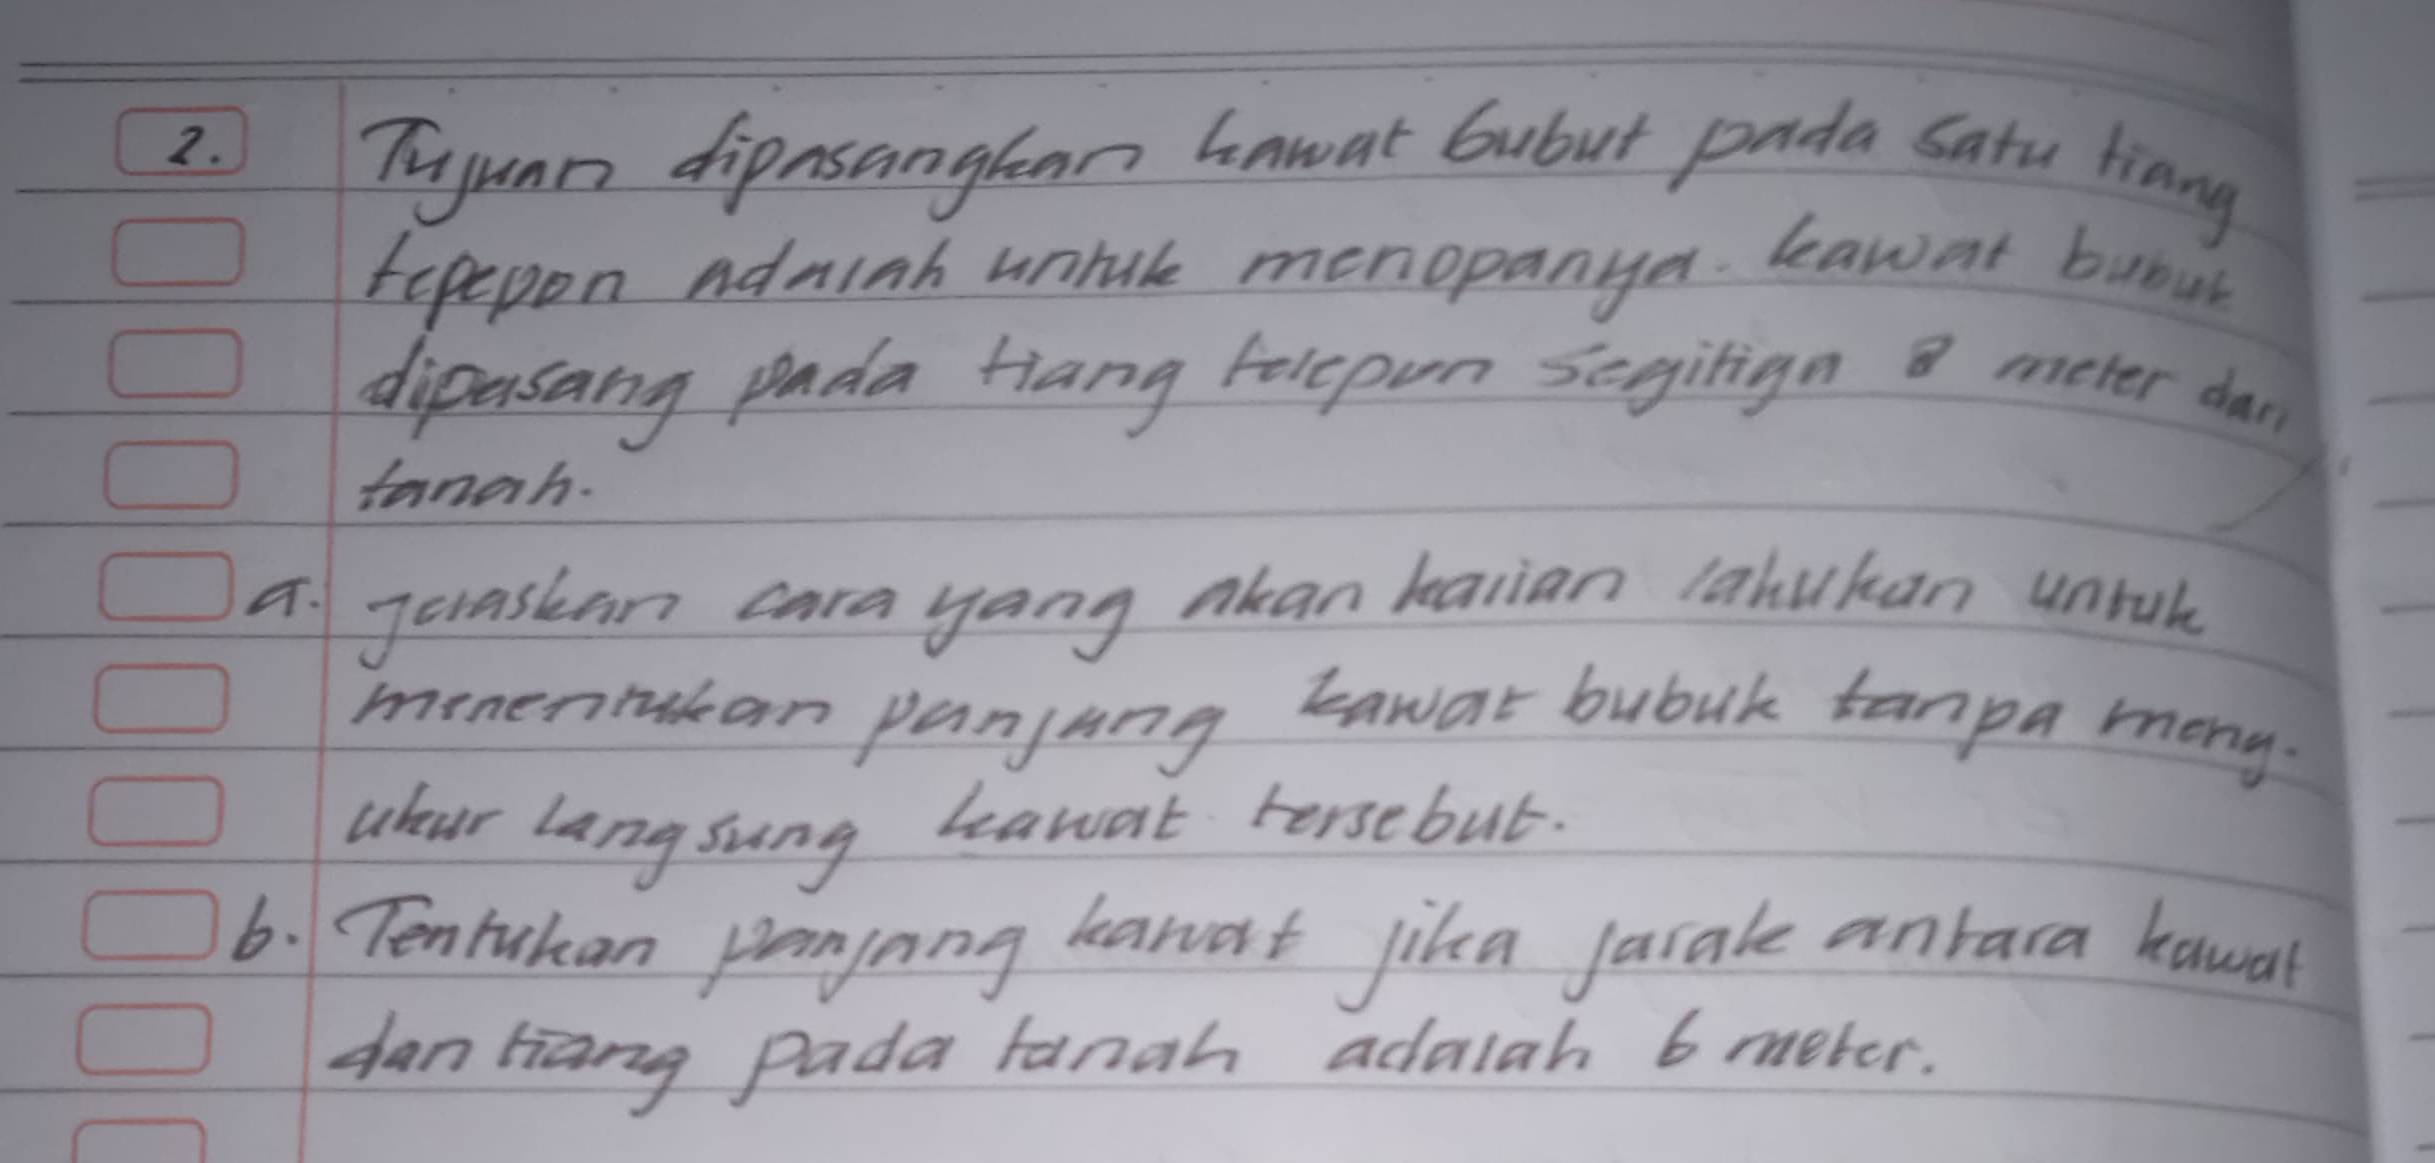 2. Tujuan dipasangkan kawat bubut pada satu tiang
tepepon adalah untuk menopanya. kawat bubuk
dipasang pada tiang telepun segitiga 8 meter dari
tanah.
a. jelaskan cara yang akan kalian lakukan untuk
menentukan panjang kawat bubuk tanpa meng-
ukur langsung kawat tersebut.
b. Tentukan panjang kawat jika jarak antara kawat
dan tiang pada tanah adalah 6 meter.